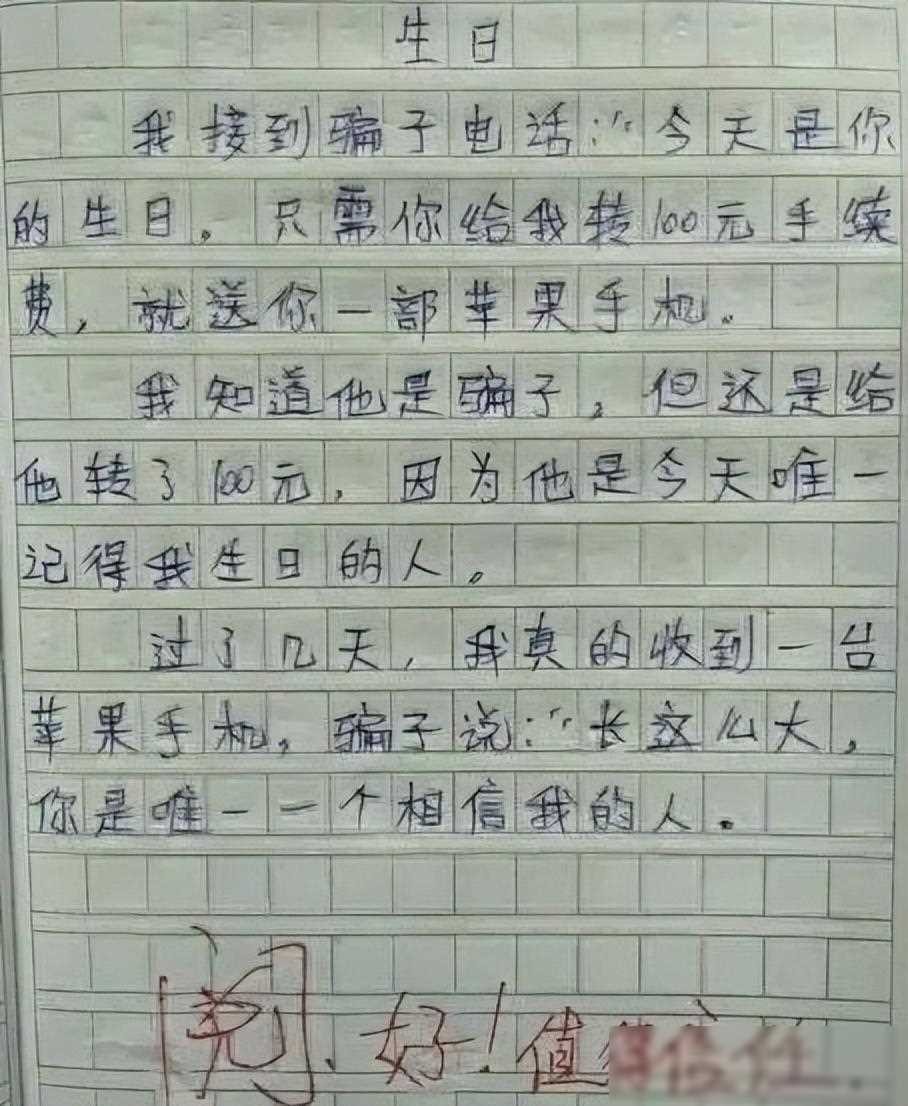 生日
我接到骗子电话:“今天是你
的生日。只需你给我转100元手续
费,就送你一部苹果手机。
我知道他是骗子,但还是给
他转了100元,因为他是今天唯一
记得我生日的人。
过了几天,我真的收到一台
苹果手机,骗子说:“长这么大,
你是唯一一个相信我的人。
阅、好!值得信任.